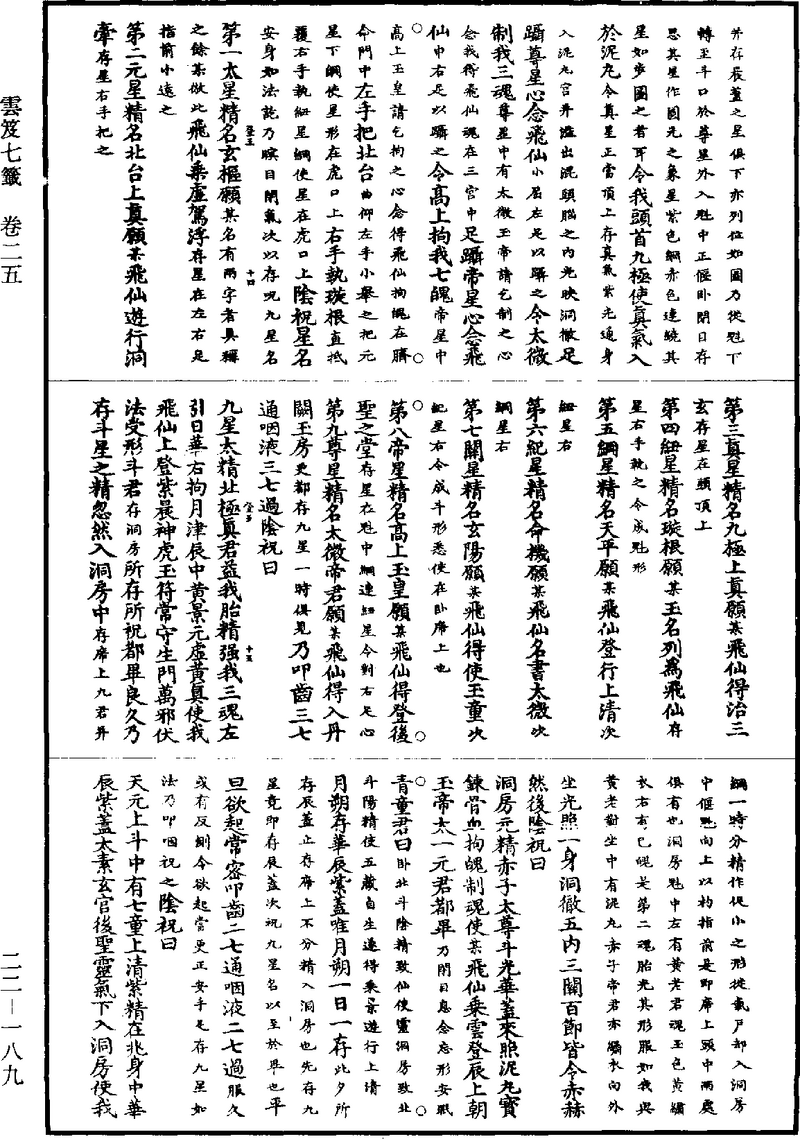 雲笈七籤　卷二五
二二—一八九
并存辰蓋之星俱下亦列位如圖乃從魁下
轉至斗口於尊星外入魁中正偃卧閉目存
思其星作圓光之象星紫色綱赤色連繞其
星如步圖之者耳令我頭首九極使真氣入
於泥丸令真星正當頂上存真氣紫光遍身
入泥丸宮并溢出混頭腦之內光映洞徹足
躡尊星心念飛仙小屈左足以躡之令太微
制我三魂尊星中有太微玉帝請乞制之心
念我得飛仙魂在三宮中足躡帝星心念飛
仙中右足以躡之令高上拘我七魄帝星中
高上玉皇請乞拘之心念得飛仙拘魄在臍
命門中左手把北台曲仰左手小舉之把元
星下綱使星形在虎口上右手執璇根直抵
覆右手執紐星綱使星在虎口上陰祝星名
安身如法訖乃瞑目閉氣次以存呪九星名
第一太星精名玄樞願某名有兩字者具稱
之餘某倣此飛仙乘虛駕浮存星在左右足
指前小遠之
第二元星精名北台上真願某飛仙遊行洞
牽存星右手把之
第三真星精名九極上真願某飛仙得治三
玄存星在頭頂上
第四紐星精名璇根願某玉名列爲飛仙存
星右手執之令成魁形
第五綱星精名天平願某飛仙登行上清次
紐星右
第六紀星精名命機願某飛仙名書太微次
綱星右
第七關星精名玄陽願某飛仙得使玉童次
紀星右令成斗形悉使在卧席上也
第八帝星精名高上玉皇願某飛仙得登後
聖之堂存星在魁中綱連紐星令對右足心
第九尊星精名太微帝君願某飛仙得入丹
闕玉房更都存九星一時俱見乃叩齒三七
通咽液三七過陰祝曰
九星太精北極真君益我胎精强我三魂左
引日華右拘月津辰中黃景元虛黃真使我
飛仙上登紫晨神虎玉符常守生門萬邪伏
法受形斗君存洞房所存所祝都畢良久乃
存斗星之精忽然入洞房中存席上九君并
綱一時分精作促小之形從氣戶却入洞房
中偃魁向上以杓指前是即席上頭中兩處
俱有也洞房魁中左有黃老君魂玉色黃繡
衣右有己魄是第二魂胎光其形服如我與
黃老對坐中有泥丸赤子帝君亦繡衣向外
坐光照一身洞徹五內三關百節皆令赤赫
然後陰祝曰
洞房元精赤子太尊斗光華蓋來照泥丸寶
鍊骨血拘魄制魂使某飛仙乘雲登辰上朝
玉帝太一元君都畢乃閉目息念忘形安眠
青童君曰卧北斗陰精致仙使靈洞房致北
斗陽精使五藏自生遠得乘景遊行上清
月朔存華辰紫蓋唯月朔一日一存此夕所
存辰蓋正存席上不分精入洞房也先存九
星竟即存辰蓋次祝九星名以至於畢也平
旦欲起常密叩齒二七通咽液二七過服久
或有反側今欲起當更正安手足存九星如
法乃叩咽祝之陰祝曰
天元上斗中有七童上清紫精在兆身中華
辰紫蓋太素玄宮後聖靈氣下入洞房使我